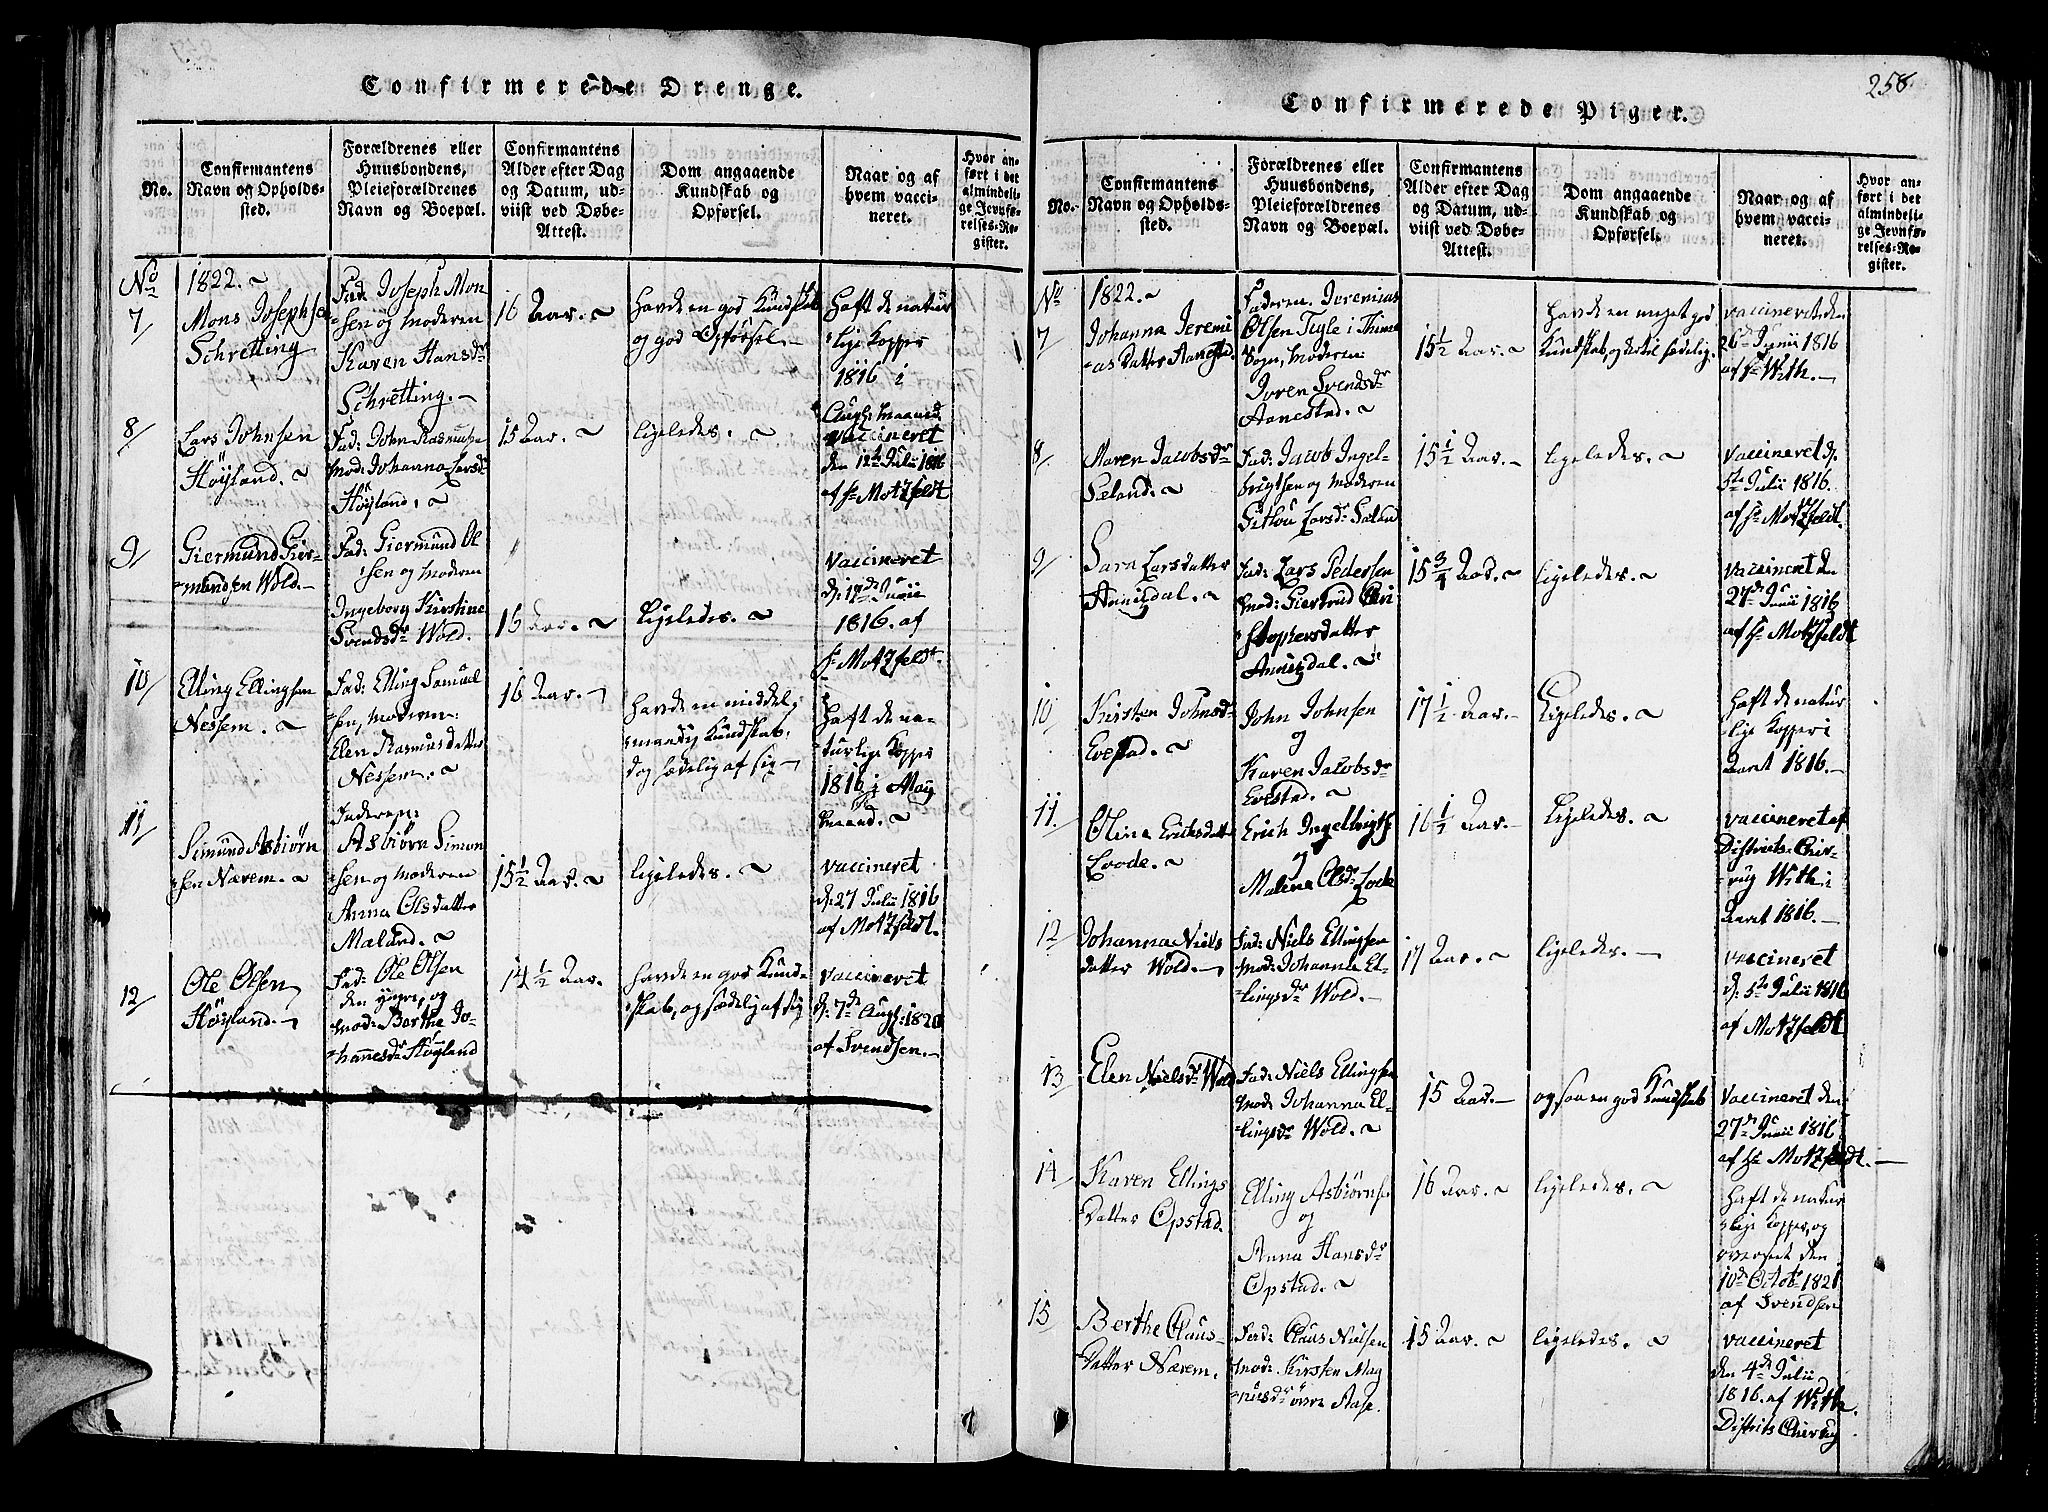 Confirmerede Drenge.
No.
Confirmantens
Navn og Opholds-
sted.
Forældrenes eller
Huusbondens,
Pleieforældrenes
Navn og Boepæl.
Confirmantens
Alder efter Dag
og Datum, ud-
viist ved Døbe-
Attest.
Dom angaaende
Kundskab og
Opførsel.
Naar og af
hvem vacci-
neret.
Hvor an-
ført i det
almindeli-
ge Jevnfø-
relses-Re-
gister.
No
7
1822.
Mons Josephsen
Schretting
Fad: Joseph Mon
sen og Moderen
Karen Hansdr
Schretting.
16 Aar.
Havde en god Kundskab
og god Opførsel.
Haft de natur
lige Kopper
1816 i
Augs: Maaned.
8
Lars Johnsen
Höyland.
Fad: John Rasmuss
Mod: Johanna Larsdr
Höyland.
15 Aar.
ligeledes.
vaccineret
den 12te Julii 1816
af Hr Motzfeldt
9
Giermund Gier-
mundsen Wold.
Fad: Giermund Ol
sen og Moderen
Ingeborg Kirstine
Svendsdr Wold.
16 Aar.
Ligeledes.
vaccineret
1816. af
Hr Motzfeldt.
10
Elling Ellingsen
Nessem.
Fad: Elling Samuel
sen, Moderen:
Elen Rasmusdatter
Nessem.
16 Aar.
Havde en middel
maadig Kundskab,
dog sædelig af sig
Haft de na-
turlige Kopper
1816 i May
Maaned.
11
Simund Asbiørn
sen Nærem.
Faderen:
Asbiørn Simon
sen og Moderen
Anna Olsdatter
Maland.
15 1/2 Aar.
ligeledes.
vaccineret
d: 27 Julii 1816
af Motzfeldt.
12
Ole Olsen
Höyland.
Fad: Ole Olsen
den yngre, og
Mod: Berthe Jo-
hannesdr Höyland
14 1/2 Aar.
Havde en god Kund-
skab, og sædelig af sig
vaccineret
d: 7de Augs: 1820
af Svendsen.
258.
Confirmerede Piger.
No.
Confirmantens
Navn og Opholds-
sted.
Forældrenes eller
Huusbondens,
Pleieforældrenes
Navn og Boepæl.
Confirmantens
Alder efter Dag
og Datum, ud-
viist ved Døbe-
Attest.
Dom angaaende
Kundskab og
Opførsel.
Naar og af
hvem vacci-
neret.
Hvor an-
ført i det
almindeli-
ge Jevnfø-
relses-Re-
gister.
No
7
1822.
Johanna Jeremi
as Datter
Faderen. Jeremias
Olsen Tegle i Thime
Sogn, Moderen:
Joren Svendsdr
Aanestad.
15 1/2 Aar.
Havde en meget god
Kundskab, og dertil sædelig.
vaccineret den
26de Junii 1816
af Hr With.
8
Maren Jacobsdr
Seland.
Fad: Jacob Ingel-
brigtsen og Moderen
Gitlou Larsdr Seland
15 1/2 Aar.
ligeledes.
vaccineret d.
5te Julii 1816.
af Hr Motzfeldt.
9
Sara Larsdatter
Anniqdal.
Fad: Lars Pedersen
Mod: Giertrud Chri
stophersdatter
Anniqdal.
15 3/4 Aar.
ligeledes.
vaccineret den
27de Junii 1816
af Hr Motzfeldt
10
Kirsten Johnsdr
Evestad.
John Johnsen
og
Karen Jacobsdr
Evestad.
17 1/2 Aar.
Ligeledes.
Haft de natur
lige Kopper i
Aaret 1816.
11.
Olina Ericksdatter
Loode.
Erich Ingelbrigts
og
Malina Olsdr Lode
16 1/2 Aar.
Ligeledes.
vaccineret af
Districts-Chir-
rug With i
Aaret 1816.
12
Johanna Niels
datter Wold.
Fad: Niels Ellingsen
Mod: Johanna El-
lingsdr Wold.
17 Aar.
ligeledes.
vaccineret
d. 5te Julii 1816
af Motzfeldt
13
Elen Nielsdr Wold
Fad: Niels Ellingsen
Mod: Johanna El-
lingsdr Wold.
15 Aar.
ogsaa en god Kundskab
vaccineret den
27de Junii 1816
af Hr Motzfeldt.
14
Karen Ellings
Datter Opstad.
Elling Asbiørnse
og
Anna Hansdr
Opstad.
16 Aar.
ligeledes.
Haft de natur
lige Kopper, og
den
10de Octobr 1821
af Svendsen
15
Berthe Claus-
Datter Nærem.
Fad: Claus Nielsen
Mod: Kirsten Mag
nusdr övre Aase.
15 Aar.
ligeledes.
vaccineret
den 4de Julii
1816. af With.
Districts Chirrug